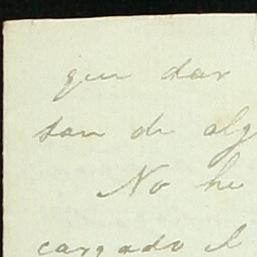 que dar
san de alg
No he
cargado el